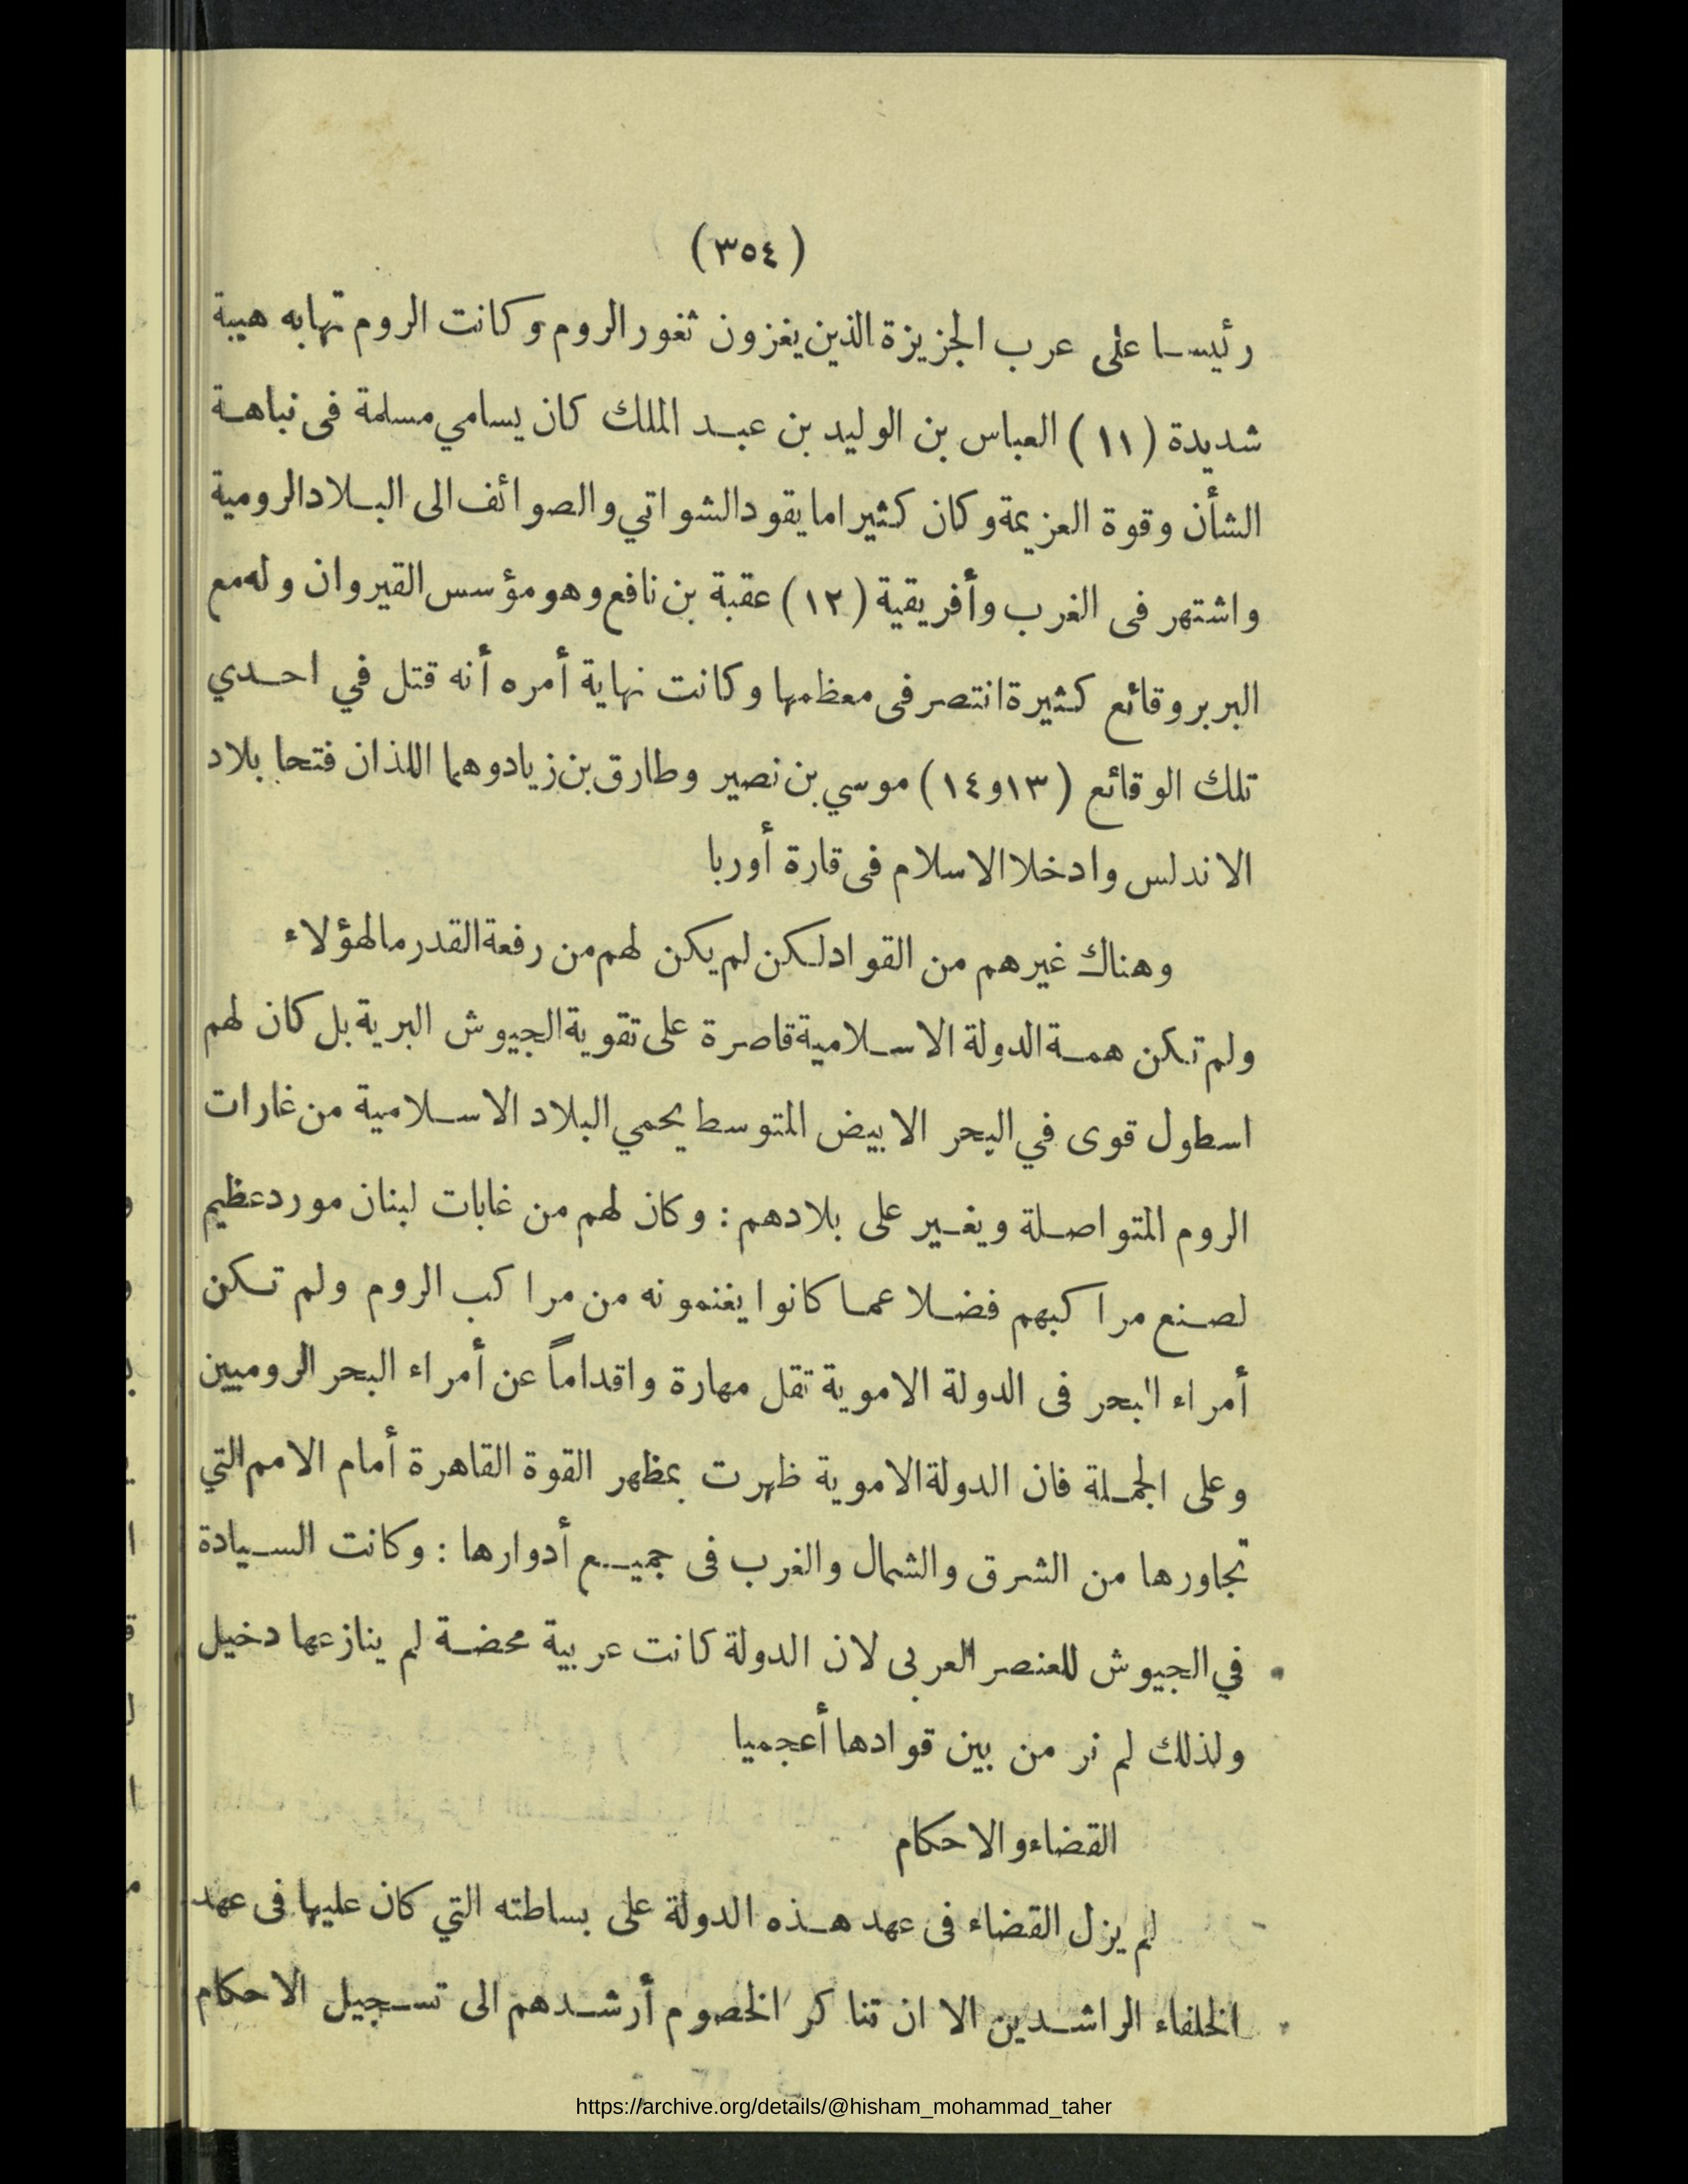 (٣٥٤)
رئيسا على عرب الجزيزة الذين يغزون ثغور الروم وكانت الروم تهابه هيبة
شديدة (١١) العباس بن الوليد بن عبد الملك كان يسامي مسلمة فى نباهة
الشأن وقوة العزيمة وكان كثيرا ما يقود الشواتي والصوائف الى البلاد الرومية
واشتهر فى الغرب وأفريقية (١٢) عقبة بن نافع وهو مؤسس القيروان وله مع
البربر وقائع كثيرة انتصر فى معظمها وكانت نهاية أمره أنه قتل في احدي
تلك الوقائع (١٣و١٤) موسي بن نصير وطارق بن زيادوهما اللذان فتحا بلاد
الاندلس وادخلا الاسلام فى قارة أوربا
وهناك غيرهم من القواد لكن لم يكن لهم من رفعة القدر ما لهؤلاء
ولم تكن همة الدولة الاسلامية قاصرة على تقوية الجيوش البرية بل كان لهم
اسطول قوى في البحر الابيض المتوسط يحمي البلاد الاسلامية من غارات
الروم المتواصلة ويغير على بلادهم : وكان لهم من غابات لبنان مورد عظيم
لصنع مراكبهم فضلا عما كانوا يغنمونه من مراكب الروم ولم تكن
أمراء البحر فى الدولة الاموية تقل مهارة واقداماً عن أمراء البحر الروميين
وعلى الجملة فان الدولة الاموية ظهرت بمظهر القوة القاهرة أمام الامم التي
تجاورها من الشرق والشمال والغرب فى جميع أدوارها : وكانت السيادة
في الجيوش للعنصر العربى لان الدولة كانت عربية محضة لم ينازعها دخيل
ولذلك لم نر من بين قوادها أعجميا
القضاء والاحكام
لم يزل القضاء فى عهد هذه الدولة على بساطته التي كان عليها فى عهد
الخلفاء الراشدين الا ان تناكر الخصوم أرشدهم الى تسجيل الاحكام
https://archive.org/details/@hisham_mohammad_taher